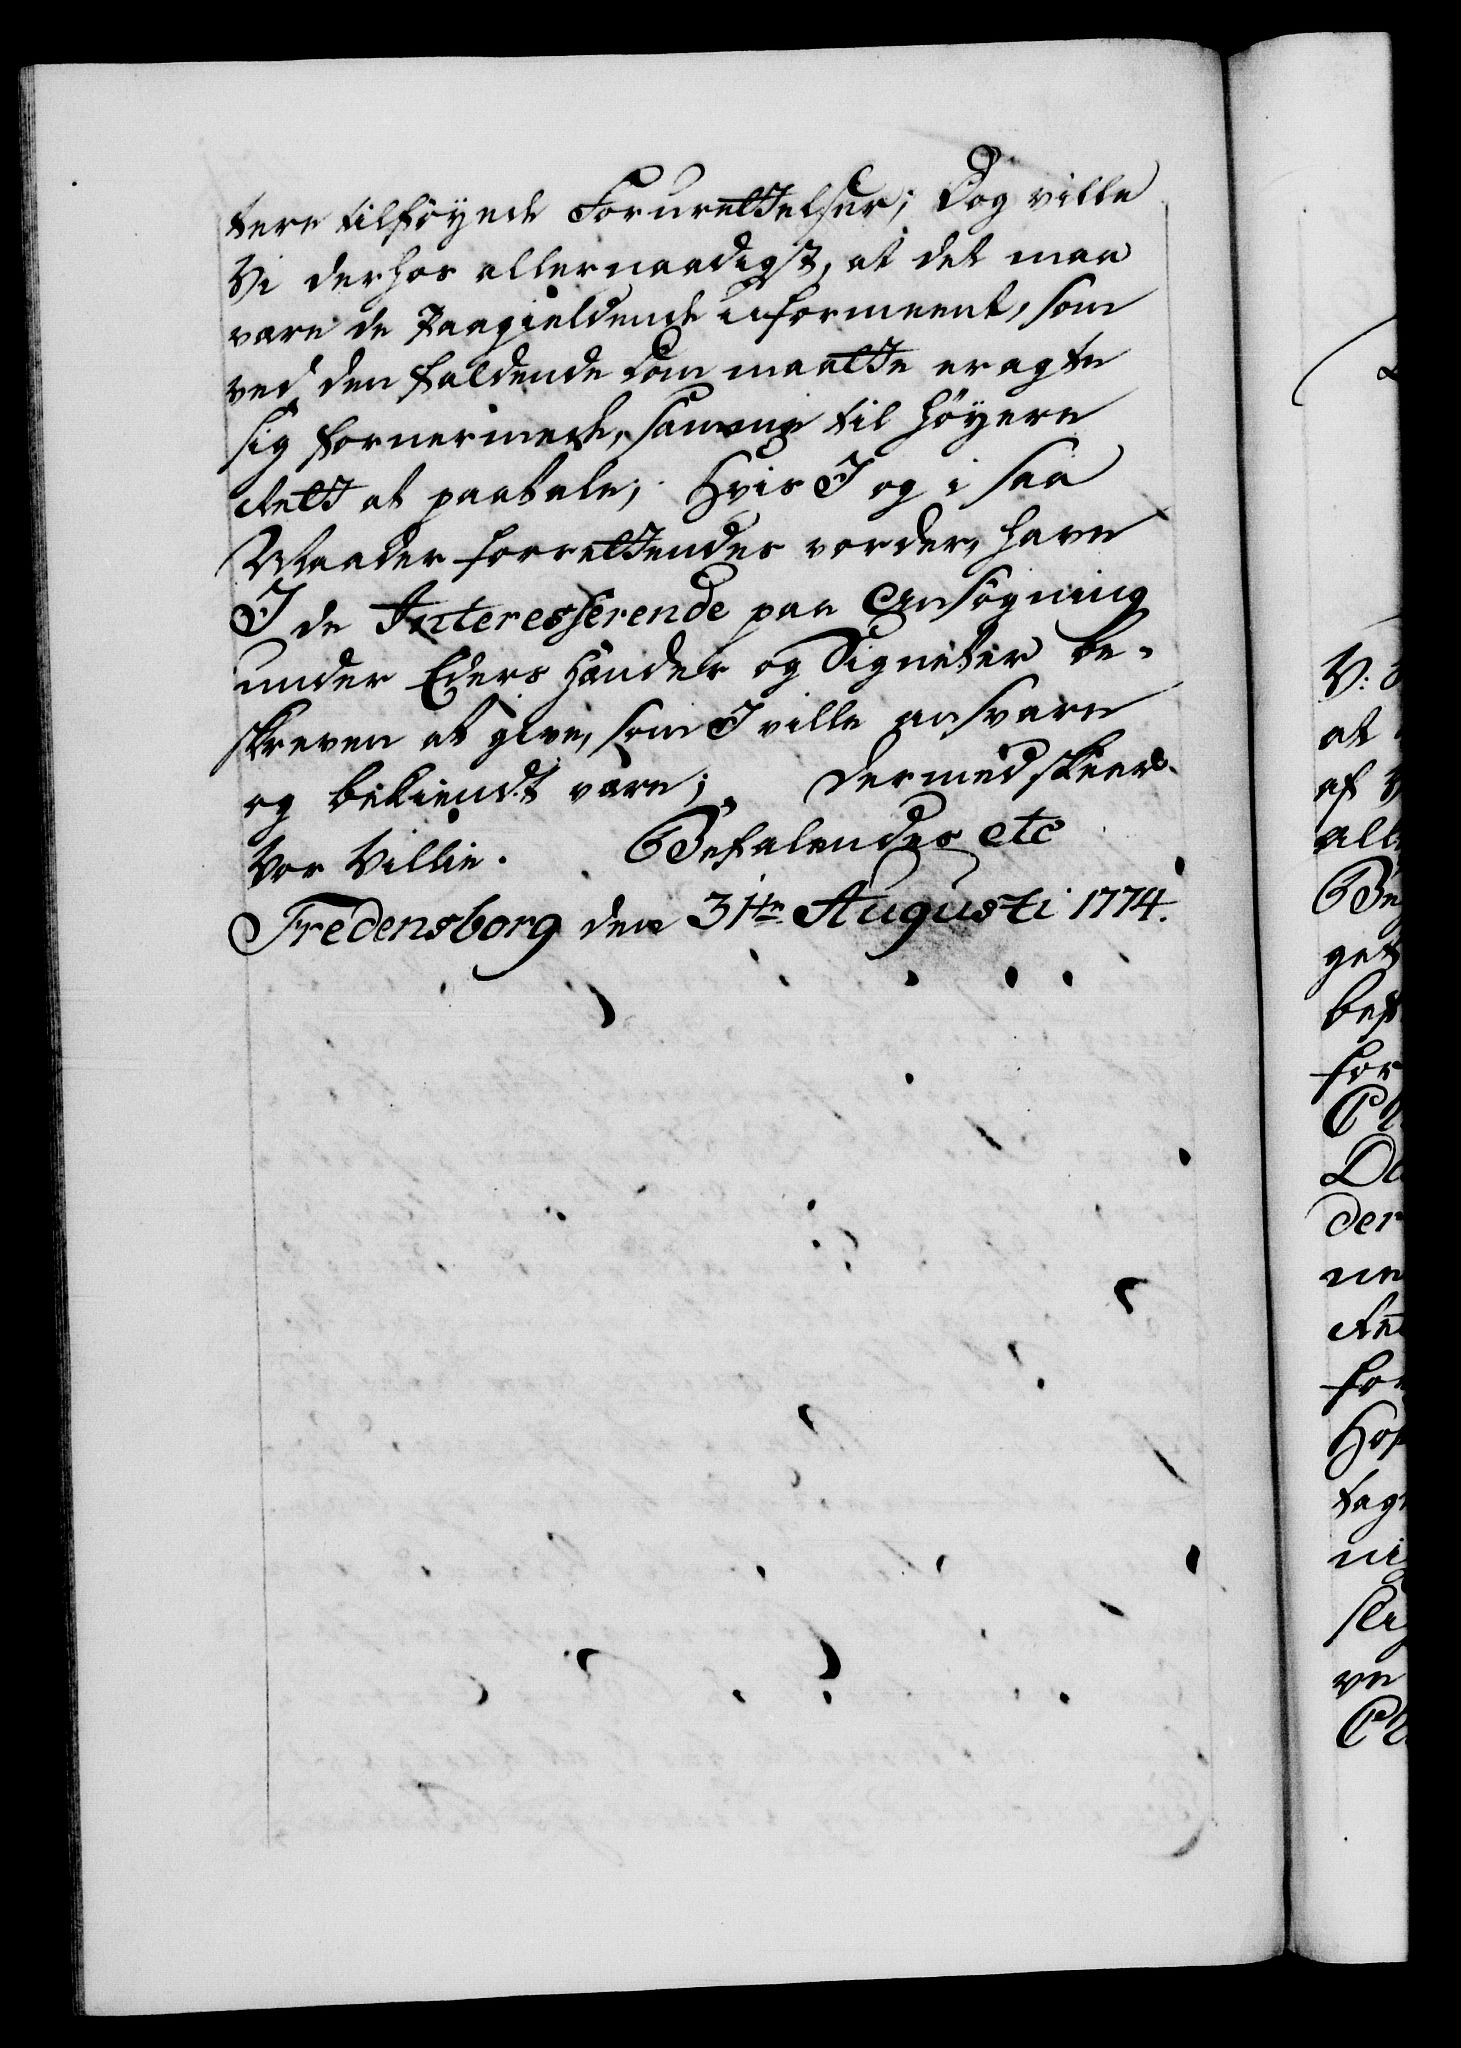 tere tilføyede Forurettelser; Dog ville
Vi derhos allernaadigst, at det maa
være de Paagieldende uformeent, som
ved den faldende Dom maatte eragte
sig fornermede, samme til høyere
Rett at paatale; Hvis I og i saa
Maader forrettendes vorder, have
I de Interesserende paa Ansøgning
under Eders Hænder og Signeter be-
skreven at give, som I ville ansvare
og bekiendt være; Dermed skeer
Vor Villie. Befalendes etc
Fredensborg den 31te Augusti 1774.
V:
at
af
all
get
bef
for
De
der
ne
Hof
tag
ni
ve